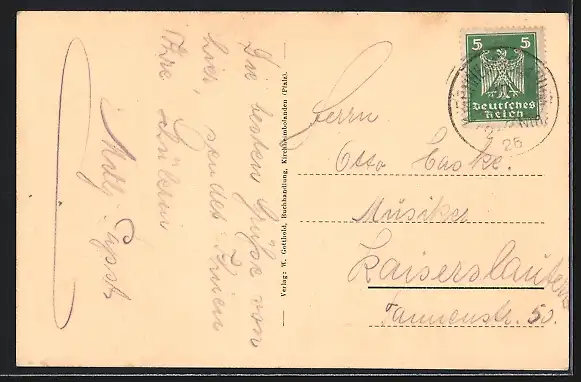 Die besten Grüße von
hier, sendet Ihnen
Ihre Schülerin
Verlag: W. Gotthold, Buchhandlung, Kirchheimbolanden (Pfalz).
5 5
Deutsches
Reich
26
Herrn
Otto
Musiker
Kaiserslautern
Tannenstr. 50.